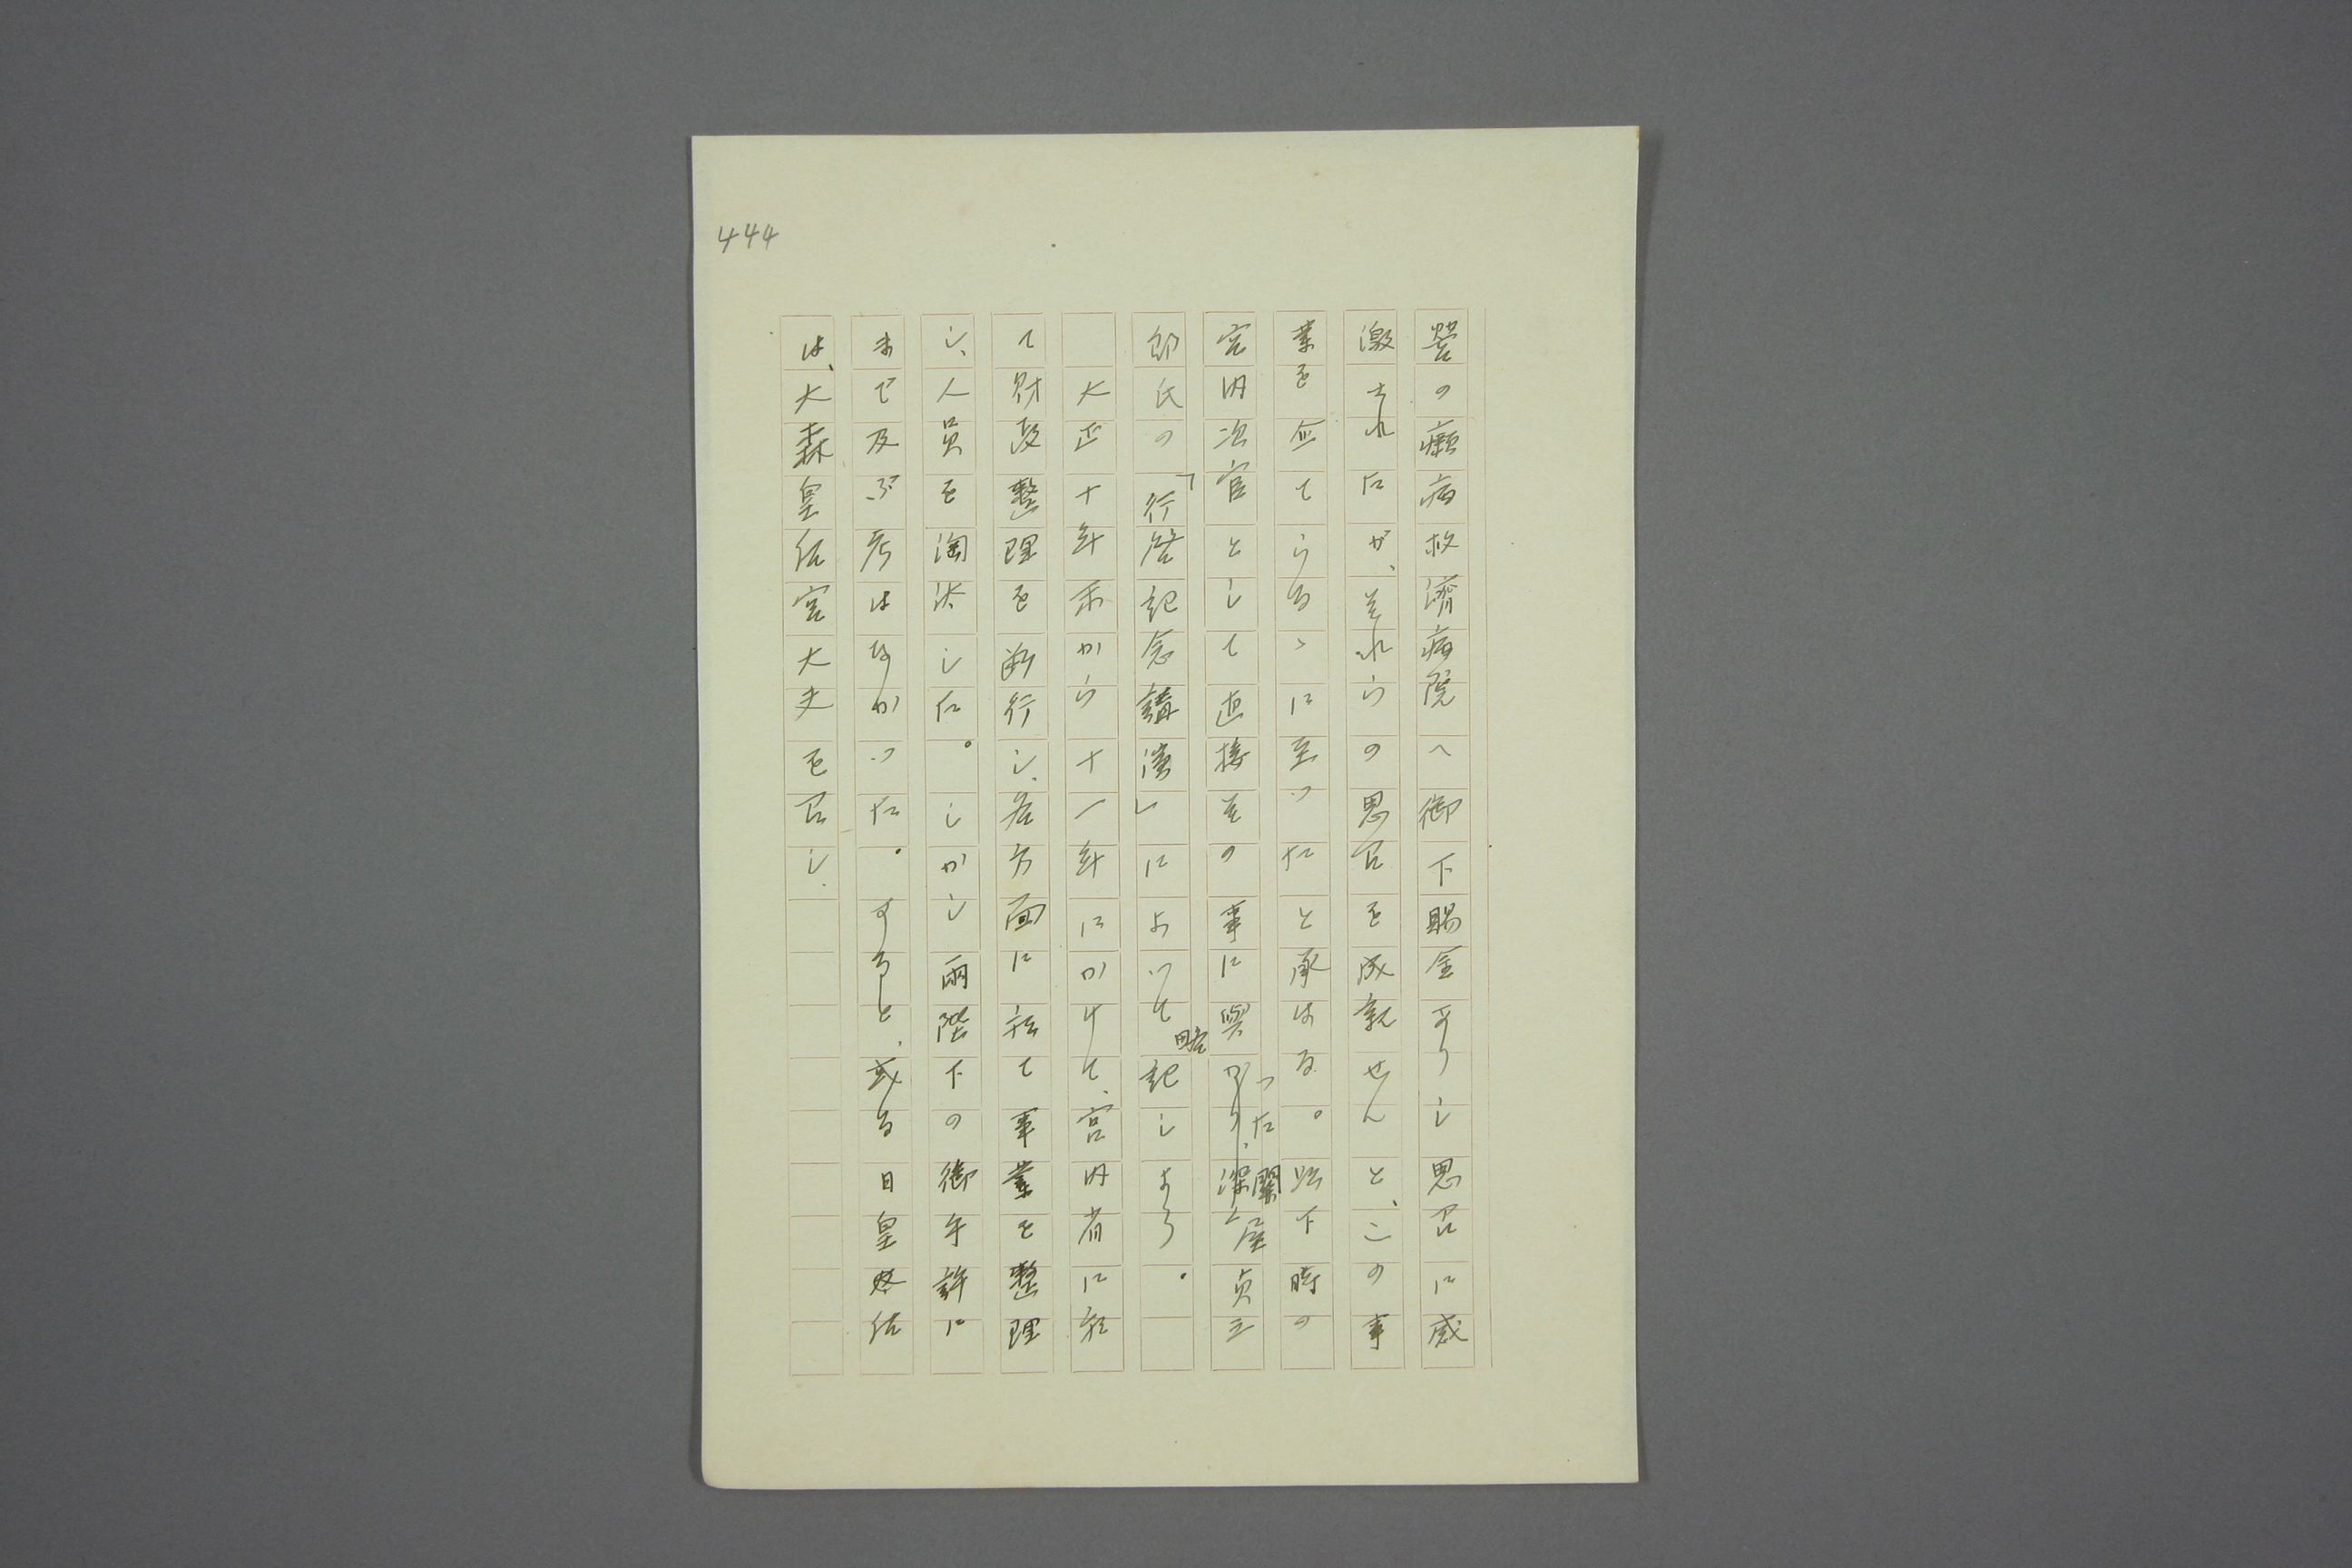 444
營の癩病救濟病院へ御下賜金ありし思召に感
激されたが、それらの思召を成就せんと、この事
業を企てらるゝに至つたと承はる。以下時の
宮内次官として直接その事に與かつた關屋貞三
郎氏の「行啓記念講演」によつて略記しよう。
大正十年末から十一年にかけて、宮内省に於
て財政整理を断行し、各方面に於て事業を整理
し、人員を淘汰した。しかし兩陛下の御手許に
まで及ぶ考はなかつた。すると、或る日皇后
は、大森皇后宮大夫を召し、